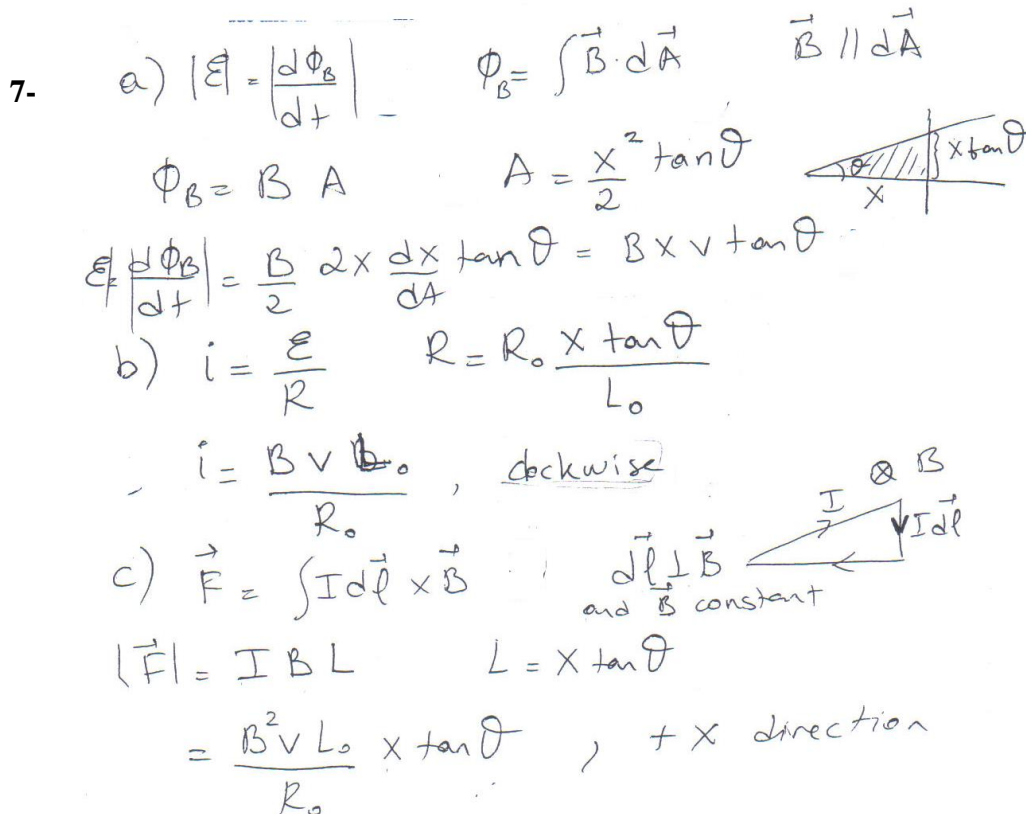 7- a) |ℰ| = |dΦ_B/dt| Φ_B = ∫B⃗·dA⃗ B⃗ // dA⃗
Φ_B = B A A = x²/2 tanθ θ x x tanθ
ℰ = |dΦ_B/dt| = B/2 2x dx/dt tanθ = B x v tanθ
b) i = ℰ/R R = R₀ x tanθ/L₀
i = B v L₀/R₀ , clockwise I ⊗ B I dl⃗
c) F⃗ = ∫I dl⃗ × B⃗ dl⃗ ⊥ B⃗
and B⃗ constant
|F⃗| = I B L L = x tanθ
= B² v L₀/R₀ x tanθ , + x direction